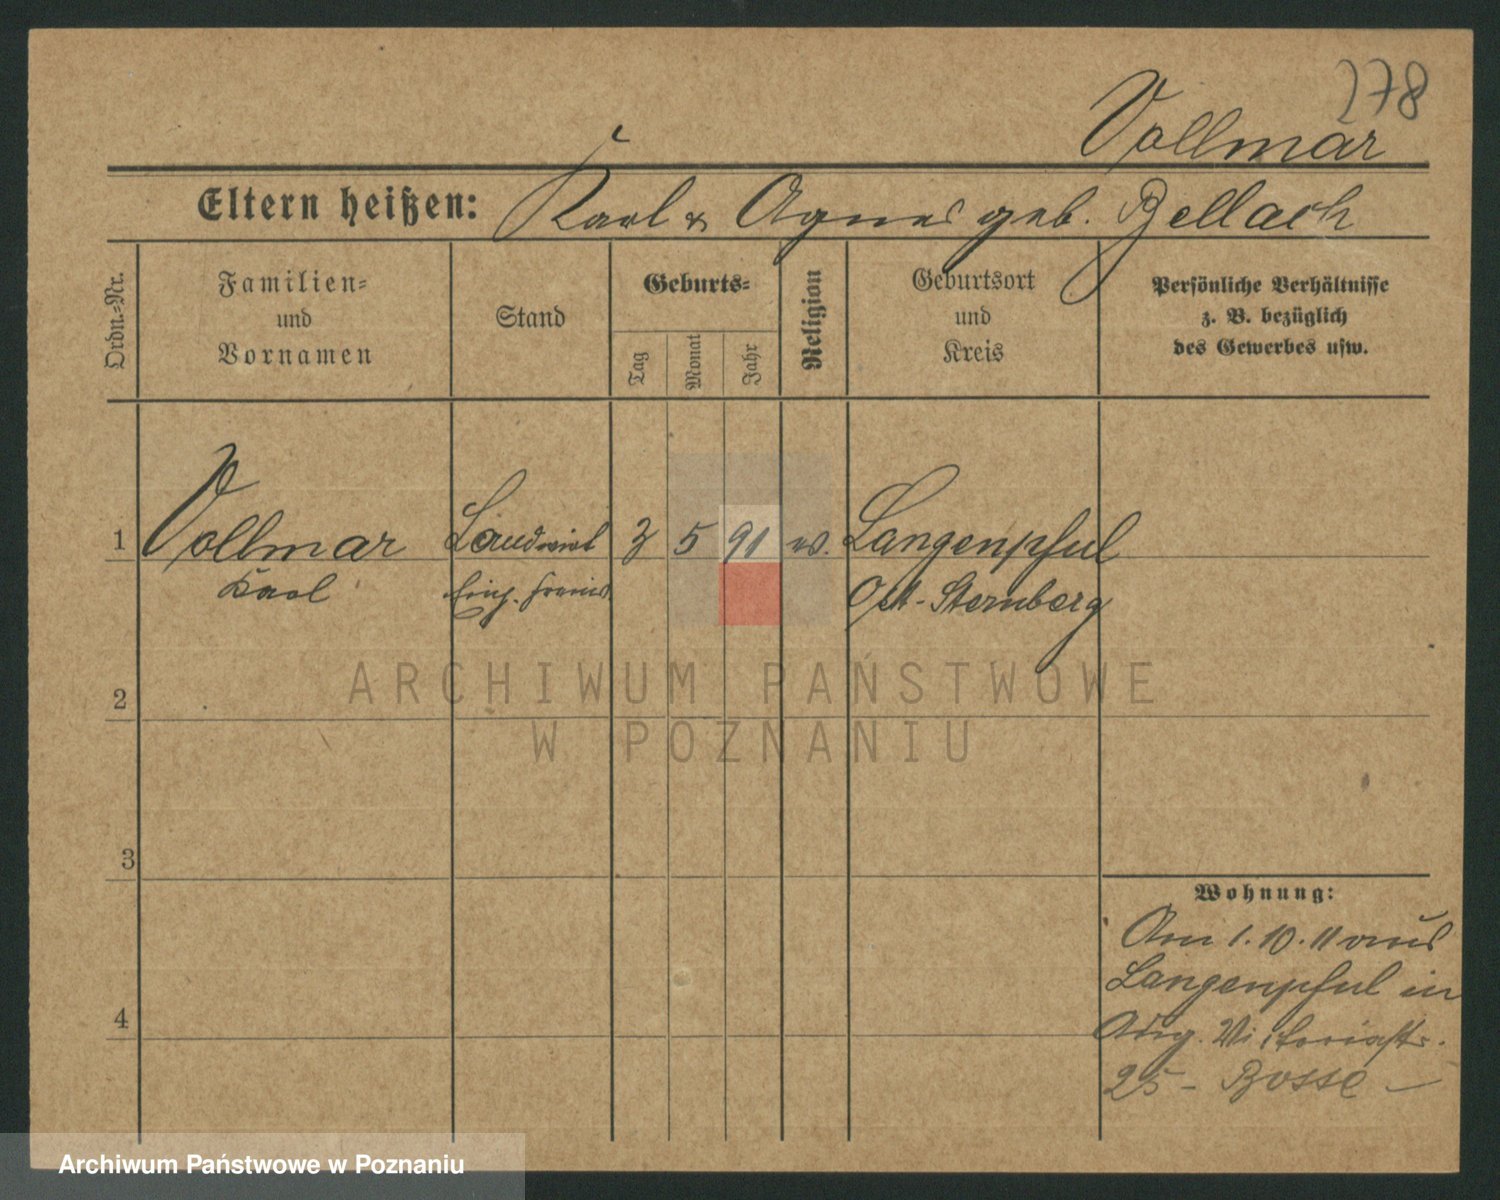 278
Vollmar
Eltern heißen: Karl & Agnes geb. Bellach
Ordn.=Nr.
Familien=
und
Vornamen
Stand
Geburts=
Tag
Monat
Jahr
Religion
Geburtsort
und
Kreis
Persönliche Verhältnisse
z. B. bezüglich
des Gewerbes usw.
1 Vollmar Landwirt 3 5 91 ev. Langenpful
Karl Einj. Ost-Sternberg
ARCHIWUM PAŃSTWOWE
W POZNANIU
2
3
4
Wohnung:
Am 1.10.11 aus
Langenpful in
Aug. Victoriastr.
25 - Bosse -
Archiwum Państwowe w Poznaniu